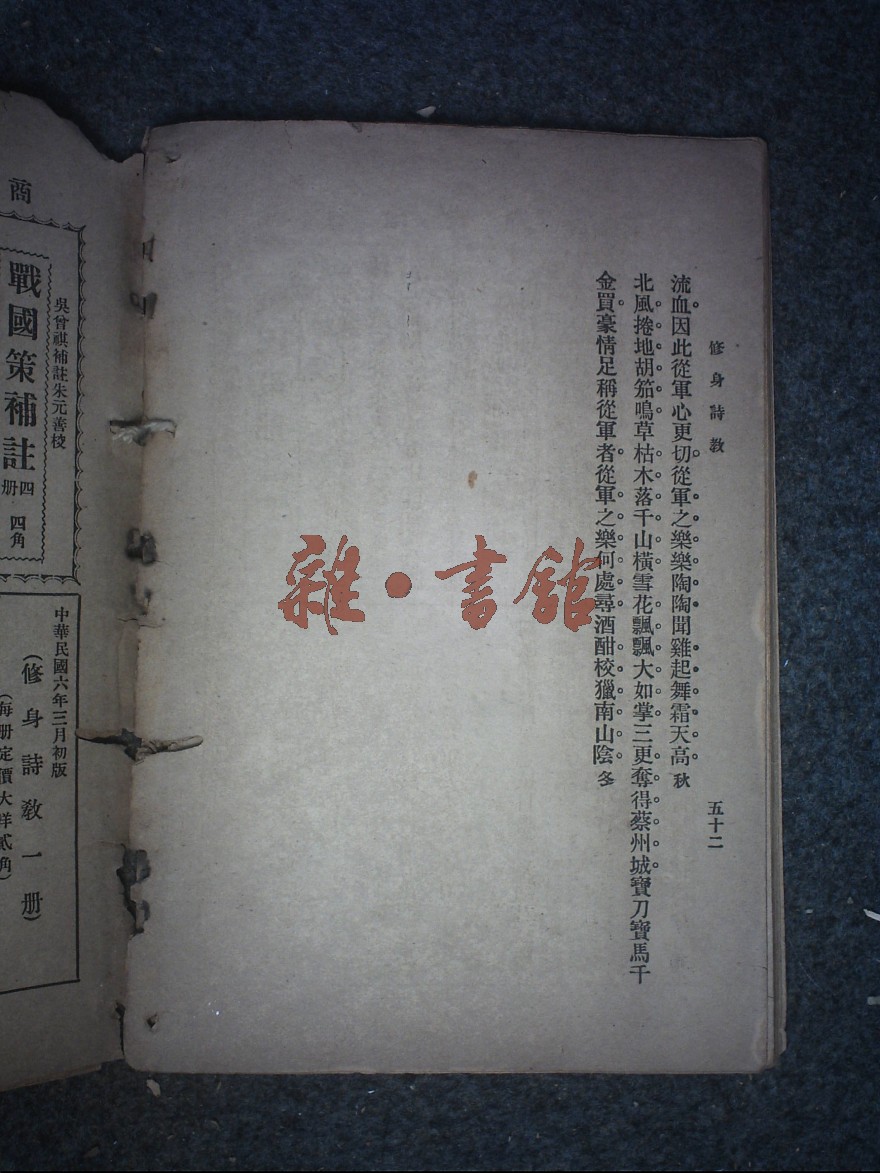 修身詩教
五十二
流血因此從軍心更切從軍之樂樂陶陶聞雞起舞霜天高秋
北風捲地胡笳鳴草枯木落千山橫雪花飄飄大如掌三更奪得蔡州城寶刀寶馬千
金買豪情足稱從軍者從軍之樂何處尋酒酣校獵南山陰冬
雜•書館
商
吳曾祺補註朱元善校
戰國策補註
四册
四角
中華民國六年三月初版
(修身詩教一册)
(每册定價大洋貳角)